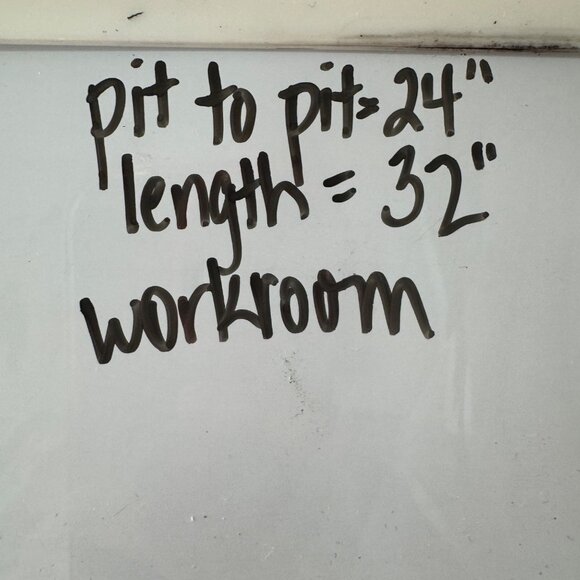 pit to pit = 24"
length = 32"
workroom